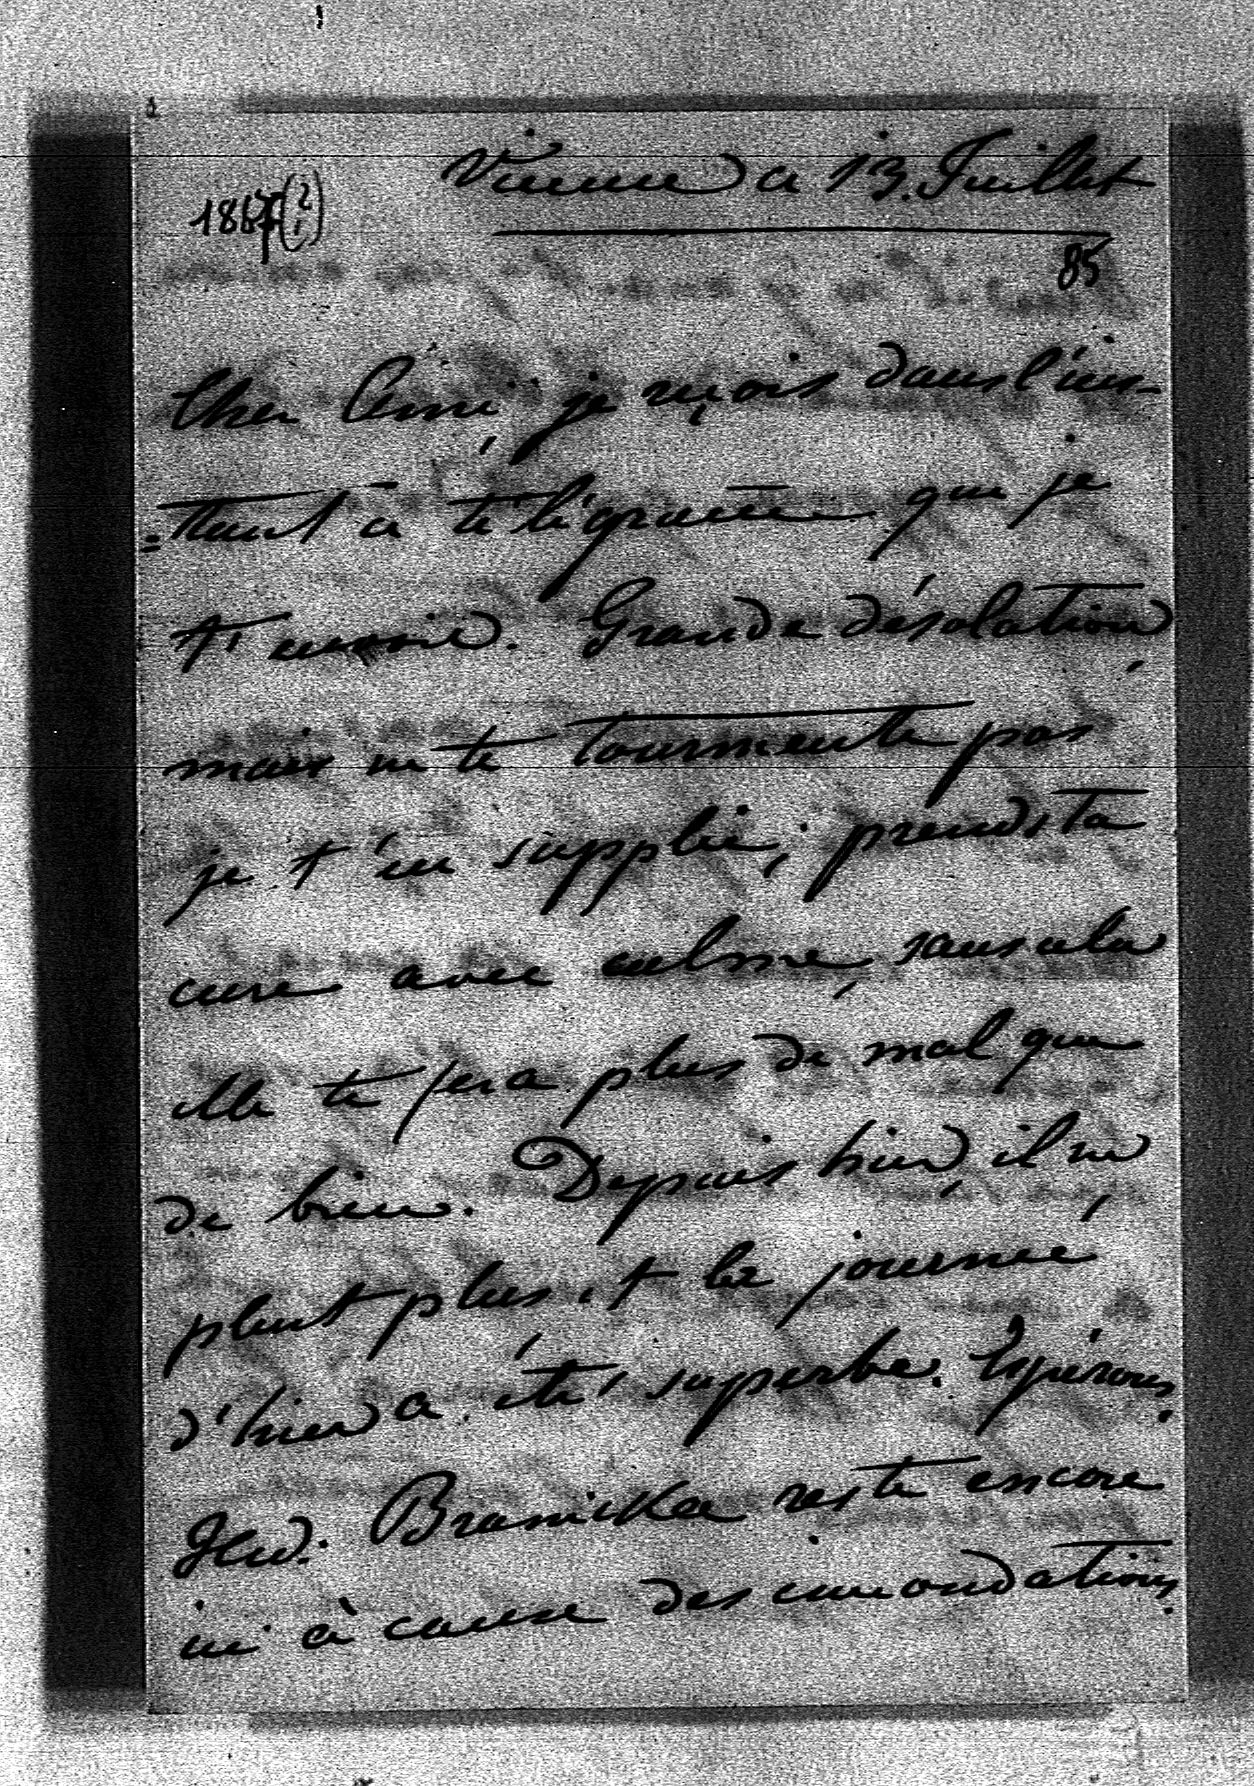 Vienne ce 13. Juillet
1867(?)
85
Cher Ami, je reçois dans l'ins-
=tant ce télégramme que je
t'envoie. Grande désolation,
mais ne te tourmente pas
je t'en supplie, prends ta
cure avec calme, sans cela
elle te fera plus de mal que
de bien. Depuis hier, il ne
pleut plus, et la journée
d'hier a été superbe. Espérons.
Hed. Branicka reste encore
ici à cause des inondations.